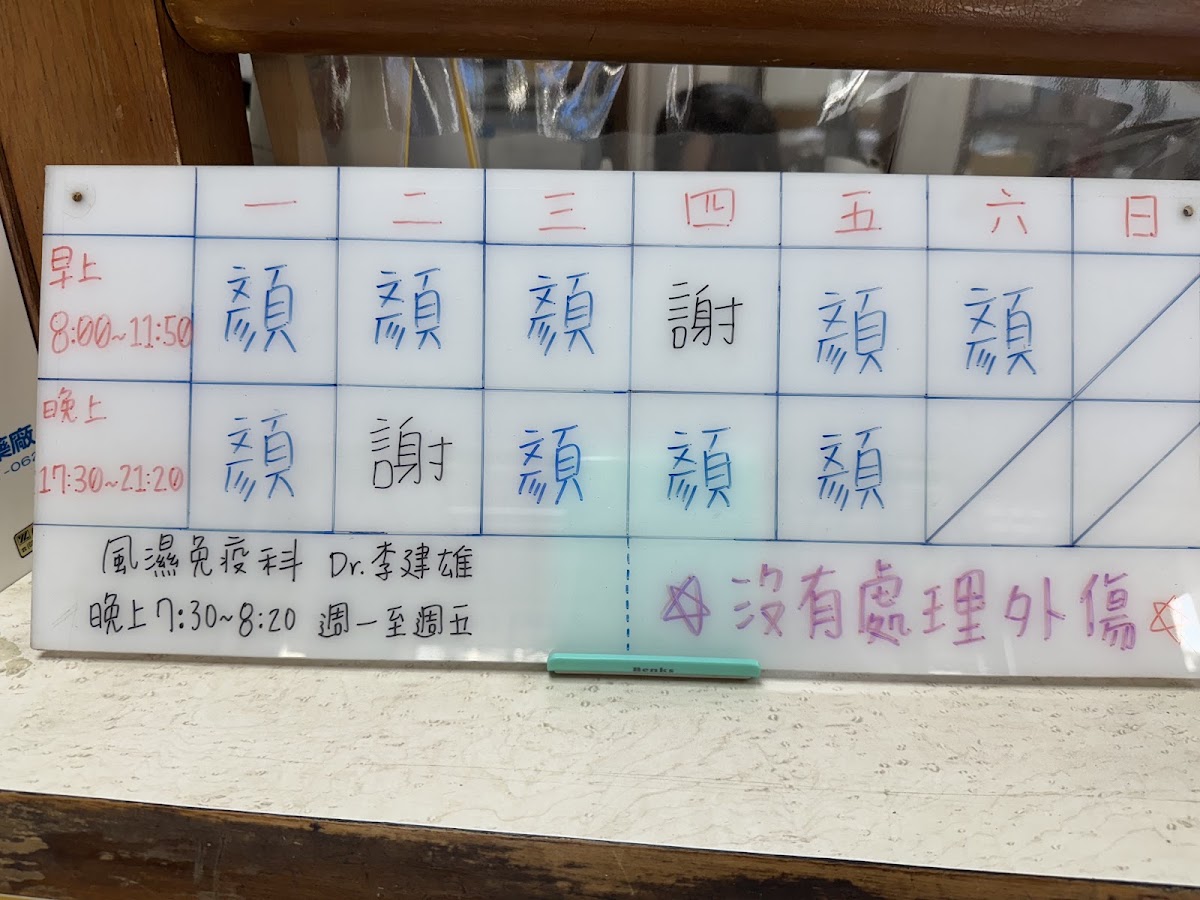 一 二 三 四 五 六 日
早上
8:00~11:50 顏 顏 顏 謝 顏 顏
晚上
17:30~21:20 顏 謝 顏 顏 顏
風濕免疫科 Dr.李建雄
晚上7:30~8:20 週一至週五
☆沒有處理外傷☆
Benks
藥廠
-062